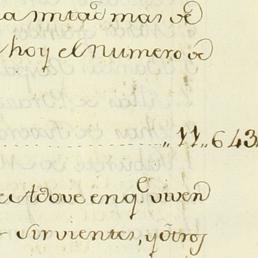 a mitad mas de
hoy el Numero de
11,,643
de Adove en q.e viven
sirvientes, y otros